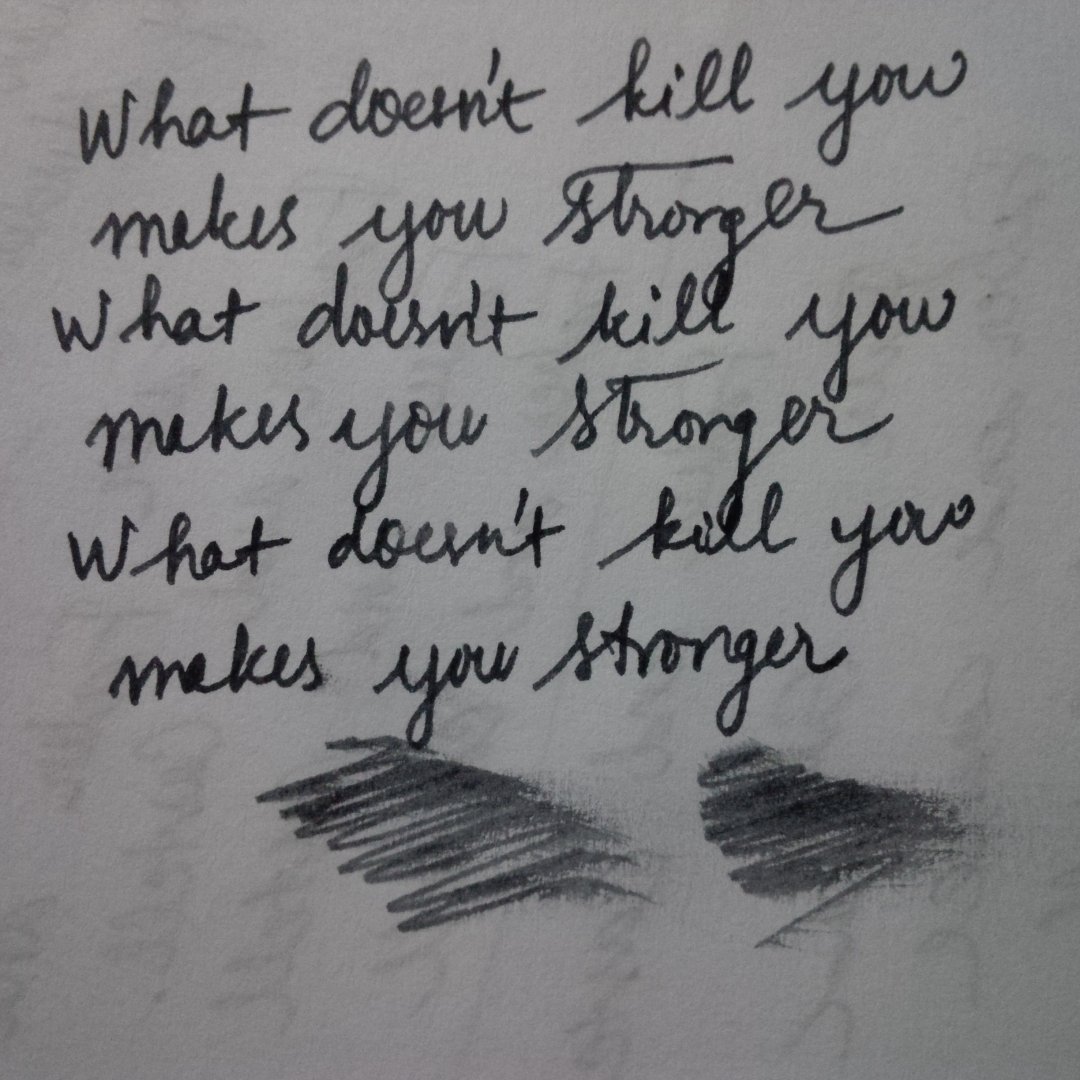 What doesn't kill you
makes you stronger
What doesn't kill you
makes you stronger
What doesn't kill you
makes you stronger